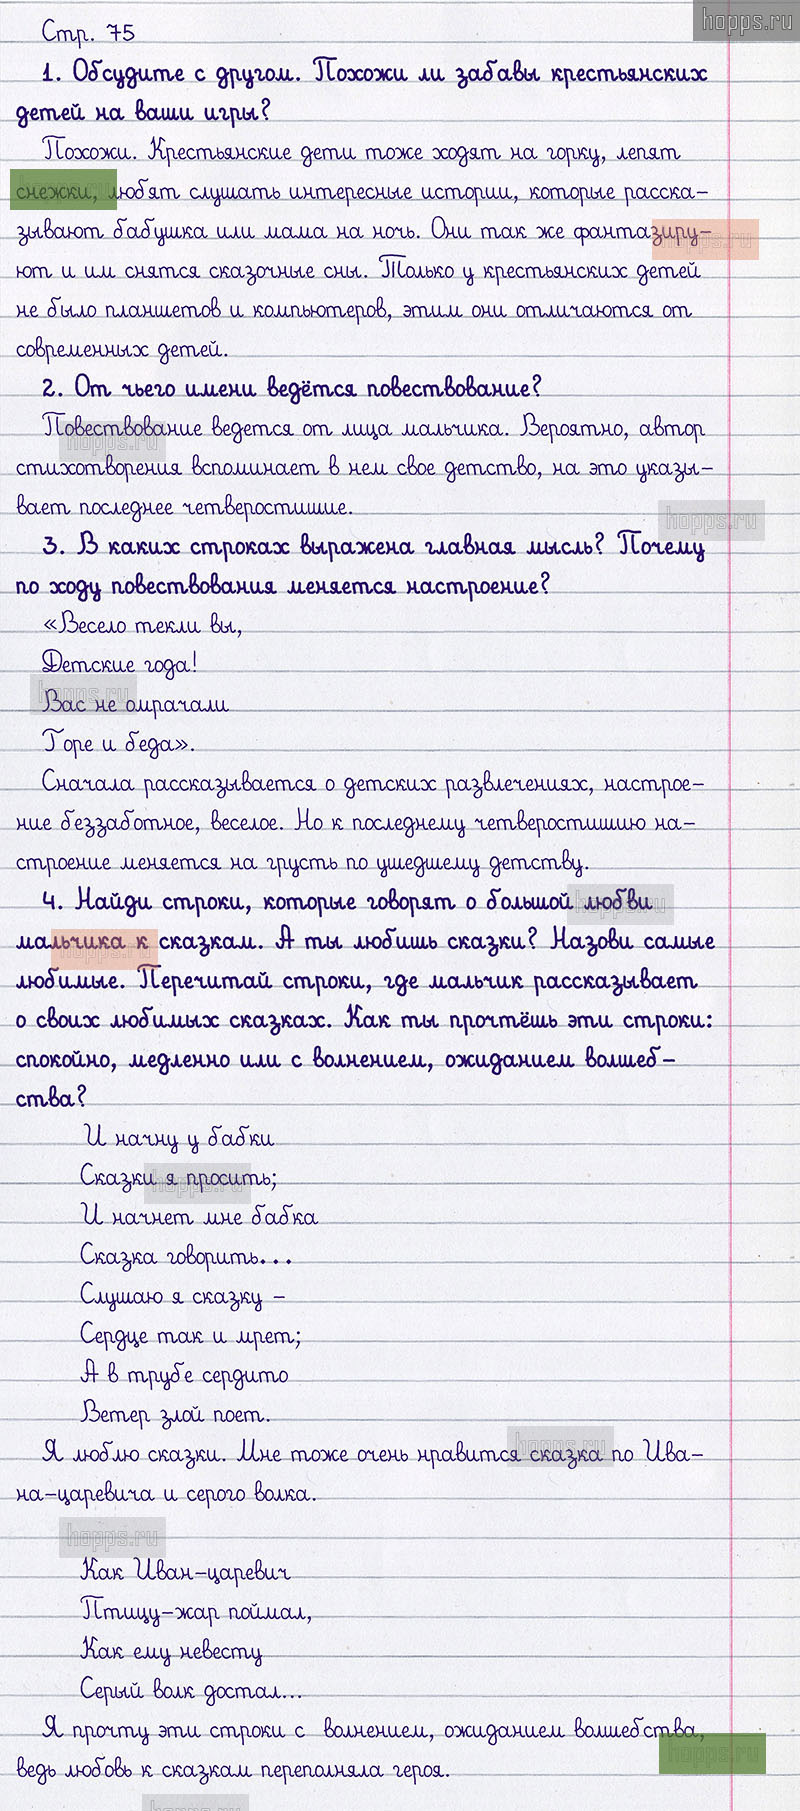 hopps.ru
Стр. 75
1. Обсудите с другом. Похожи ли забавы крестьянских
детей на ваши игры?
Похожи. Крестьянские дети тоже ходят на горку, лепят
снежки, любят слушать интересные истории, которые расска-
зывают бабушка или мама на ночь. Они так же фантазиру-
ют и им снятся сказочные сны. Только у крестьянских детей
не было планшетов и компьютеров, этим они отличаются от
современных детей.
2. От чьего имени ведётся повествование?
Повествование ведется от лица мальчика. Вероятно, автор
стихотворения вспоминает в нем свое детство, на это указы-
вает последнее четверостишие.
3. В каких строках выражена главная мысль? Почему
по ходу повествования меняется настроение?
«Весело текли вы,
Детские года!
Вас не омрачали
Горе и беда».
Сначала рассказывается о детских развлечениях, настрое-
ние беззаботное, веселое. Но к последнему четверостишию на-
строение меняется на грусть по ушедшему детству.
4. Найди строки, которые говорят о большой любви
мальчика к сказкам. А ты любишь сказки? Назови самые
любимые. Перечитай строки, где мальчик рассказывает
о своих любимых сказках. Как ты прочтёшь эти строки:
спокойно, медленно или с волнением, ожиданием волшеб-
ства?
И начну у бабки
Сказки я просить;
И начнет мне бабка
Сказка говорить...
Слушаю я сказку –
Сердце так и мрет;
А в трубе сердито
Ветер злой поет.
Я люблю сказки. Мне тоже очень нравится сказка по Ива-
на-царевича и серого волка.
Как Иван-царевич
Птицу-жар поймал,
Как ему невесту
Серый волк достал...
Я прочту эти строки с волнением, ожиданием волшебства,
ведь любовь к сказкам переполняла героя.